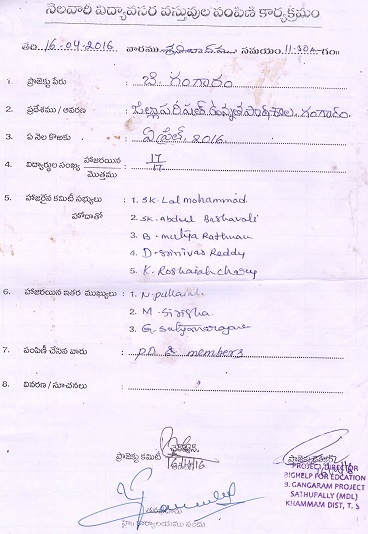 నెలవారి విద్యావసర వస్తువుల పంపిణి కార్యక్రమం
తేది 16-04-2016 వారము శనివారము సమయం 11-30 గం॥
1. ప్రాజెక్టు పేరు : బి. గంగారం
2. ప్రదేశము / ఆవరణ : జిల్లా పరిషత్ ఉన్నత పాఠశాల, గంగారం.
3. ఏ నెల కొఱకు : ఏప్రిల్, 2016.
4. విద్యార్థుల సంఖ్య హాజరయిన / మొత్తము : 17 / 17
5. హాజరైన కమిటీ సభ్యులు : 1. SK. Lal mohammad
హోదాతో 2. SK. Abdul Bashavali
3. B - mutya Rathnam
4. D - Srinivas Reddy
5. K. Roshaiah chary
6. హాజరయిన ఇతర ముఖ్యులు : 1. N. pullaiah
2. M - Sirisha
3. G. Satyanarayana
7. పంపిణీ చేసిన వారు : P.D & members
8. వివరణ / సూచనలు :
ప్రాజెక్టు కమిటీ చైర్మెన్.
16/04/16
ప్రాజెక్టు డైరెక్టర్
PROJECT DIRECTOR
BIGHELP FOR EDCATION
B. GANGARAM PROJECT
SATHUPALLY (MDL)
KHAMMAM DIST, T. S